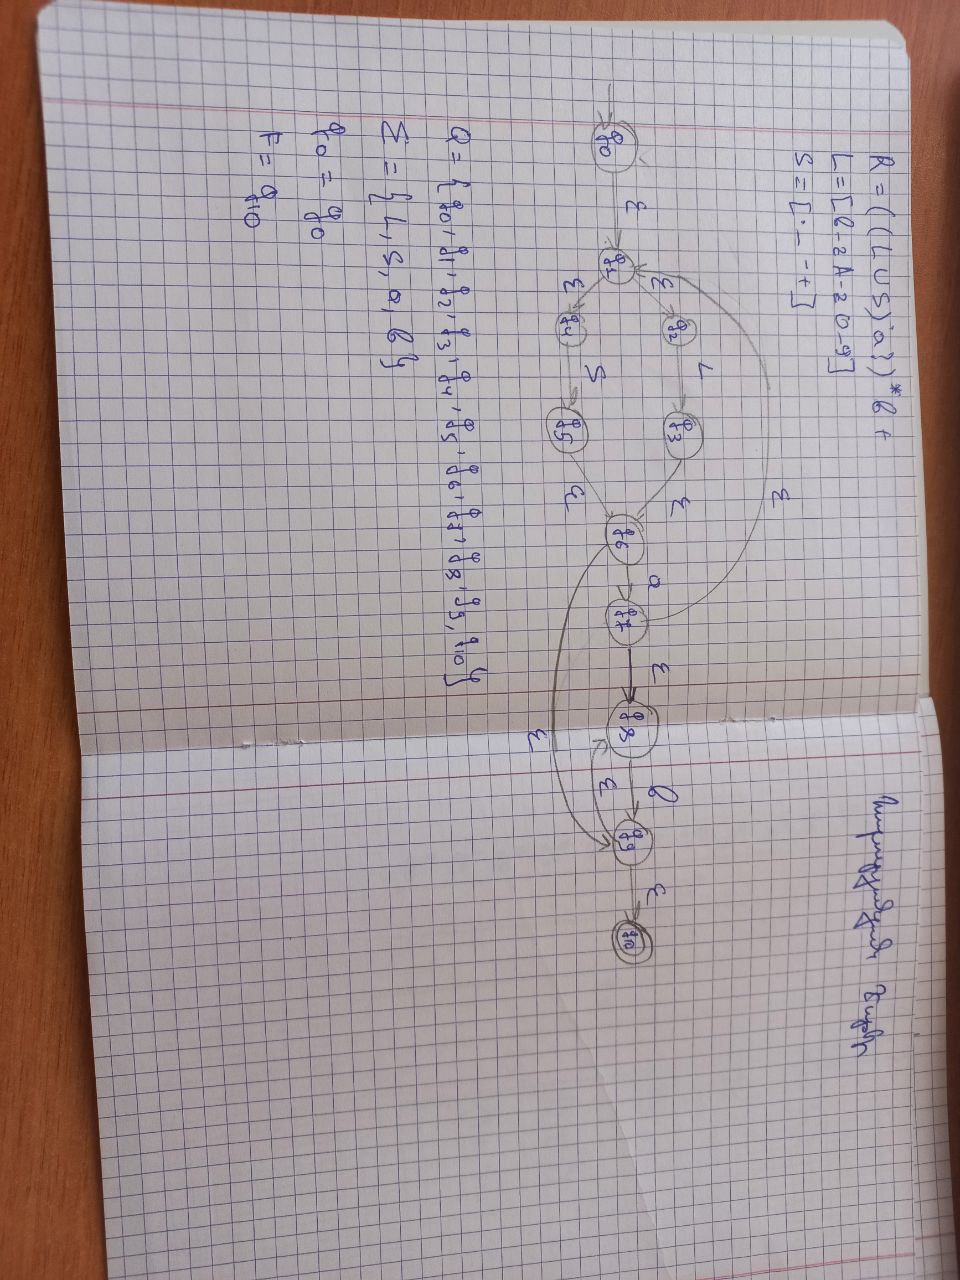 R = ((L ∪ S) a})* b +
L = [a-zA-Z0-9]
S = [. _ - +]
q0 ε q1 ε q2 L q3 ε q6 a q7 ε q8 b q9 ε q10
ε q4 S q5 ε
ε
ε
ε
Q = {q0, q1, q2, q3, q4, q5, q6, q7, q8, q9, q10}
Σ = {L, S, a, b}
q0 = q0
F = q10